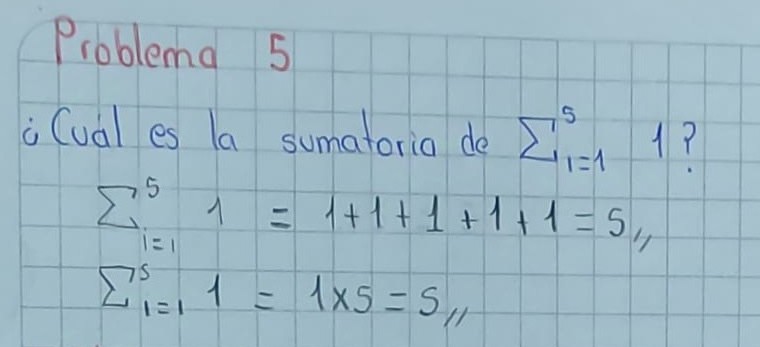 Problema 5
¿Cuál es la sumatoria de ∑⁵ᵢ₌₁ 1?
∑⁵ᵢ₌₁ 1 = 1+1+1+1+1 = 5,,
∑⁵ᵢ₌₁ 1 = 1x5 = 5,,